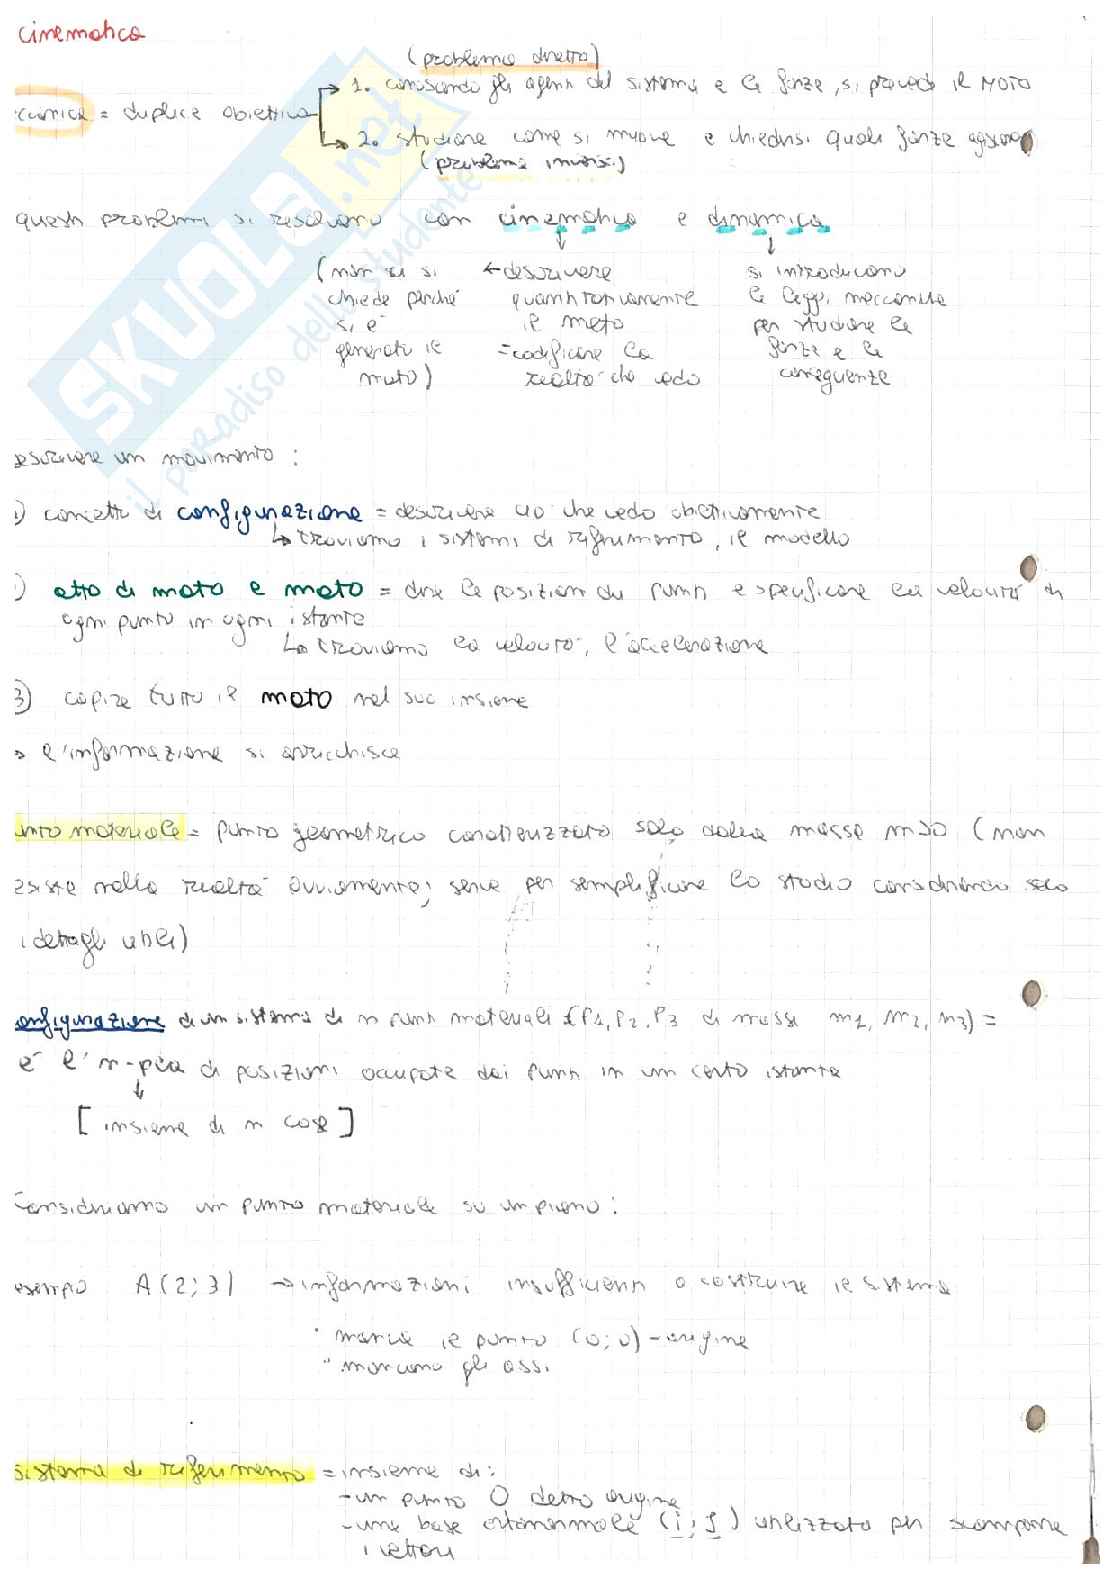 cinematica
(problema diretto)
1. conoscendo gli agenti del sistema e le forze, si prevede il MOTO
ccanica = duplice obiettivo
2. studiare come si muove e chiedersi quali forze agiscono
(problema inverso)
questi problemi si risolvono con cinematica e dinamica
(non ci si ← descrivere si introducono
chiede perché quantitativamente le leggi meccaniche
si è il moto per studiare le
generato il = codificare la forze e le
moto) realtà che vedo conseguenze
SKUOLA.net
il paradiso dello studente
descrivere un movimento:
1) concetto di configurazione = descrivere ciò che vedo obiettivamente
↳ troviamo i sistemi di riferimento, il modello
) atto di moto e moto = dire le posizioni dei punti e specificare la velocità di
ogni punto in ogni istante
↳ troviamo la velocità, l'accelerazione
3) capire tutto il moto nel suo insieme
→ l'informazione si arricchisce
unto materiale = punto geometrico caratterizzato solo dalla massa m>0 (non
esiste nella realtà ovviamente, serve per semplificare lo studio considerando solo
i dettagli utili)
onfigurazione di un sistema di n punti materiali (P1, P2, P3 di massa m1, m2, m3) =
è l'n-pla di posizioni occupate dai punti in un certo istante
[insieme di n cose]
Consideriamo un punto materiale su un piano:
esempio A(2;3) → informazioni insufficienti a costruire il sistema
• manca il punto (0;0) - origine
• mancano gli assi
sistema di riferimento = insieme di:
- un punto O detto origine
- una base ortonormale (i, j) utilizzata per scomporre
i vettori